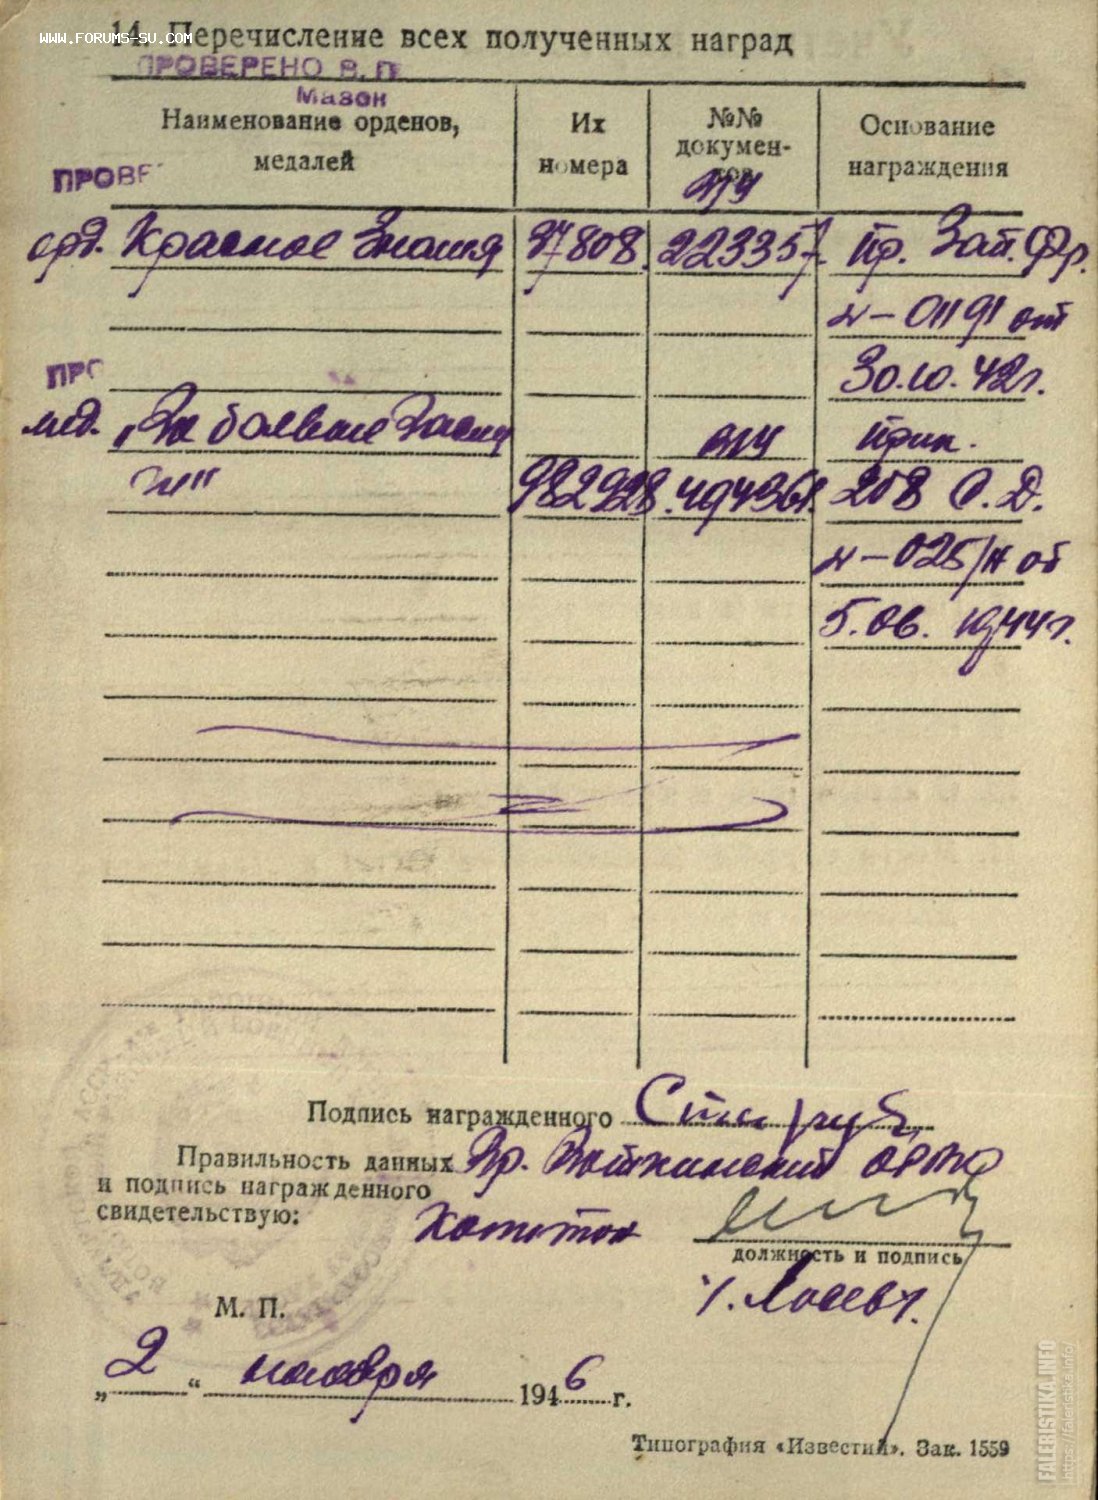 WWW.FORUMS-SU.COM
14. Перечисление всех полученных наград
ПРОВЕРЕНО В. П
Мазон
Наименование орденов, медалей
Их номера
№№ докумен-тов
Основание награждения
ПРОВЕ
орд. Красное Знамя 37808. 223357. пр. Зап. Фр.
№-01191 от
30.10.42г.
ПРО
мед. „За боевые Заслу прик.
ги" 982928. 494361. 208 С.Д.
№-025/н от
5.06.1944г.
Подпись награжденного
Правильность данных Вр. Воткинский ОРВК
и подпись награжденного
свидетельствую:
Капитан
должность и подпись
/. Лосев/.
М. П.
„ 2 “ ноября 1946 г.
Типография «Известий». Зак. 1559
FALERISTIKA.INFO
https://faleristika.info/